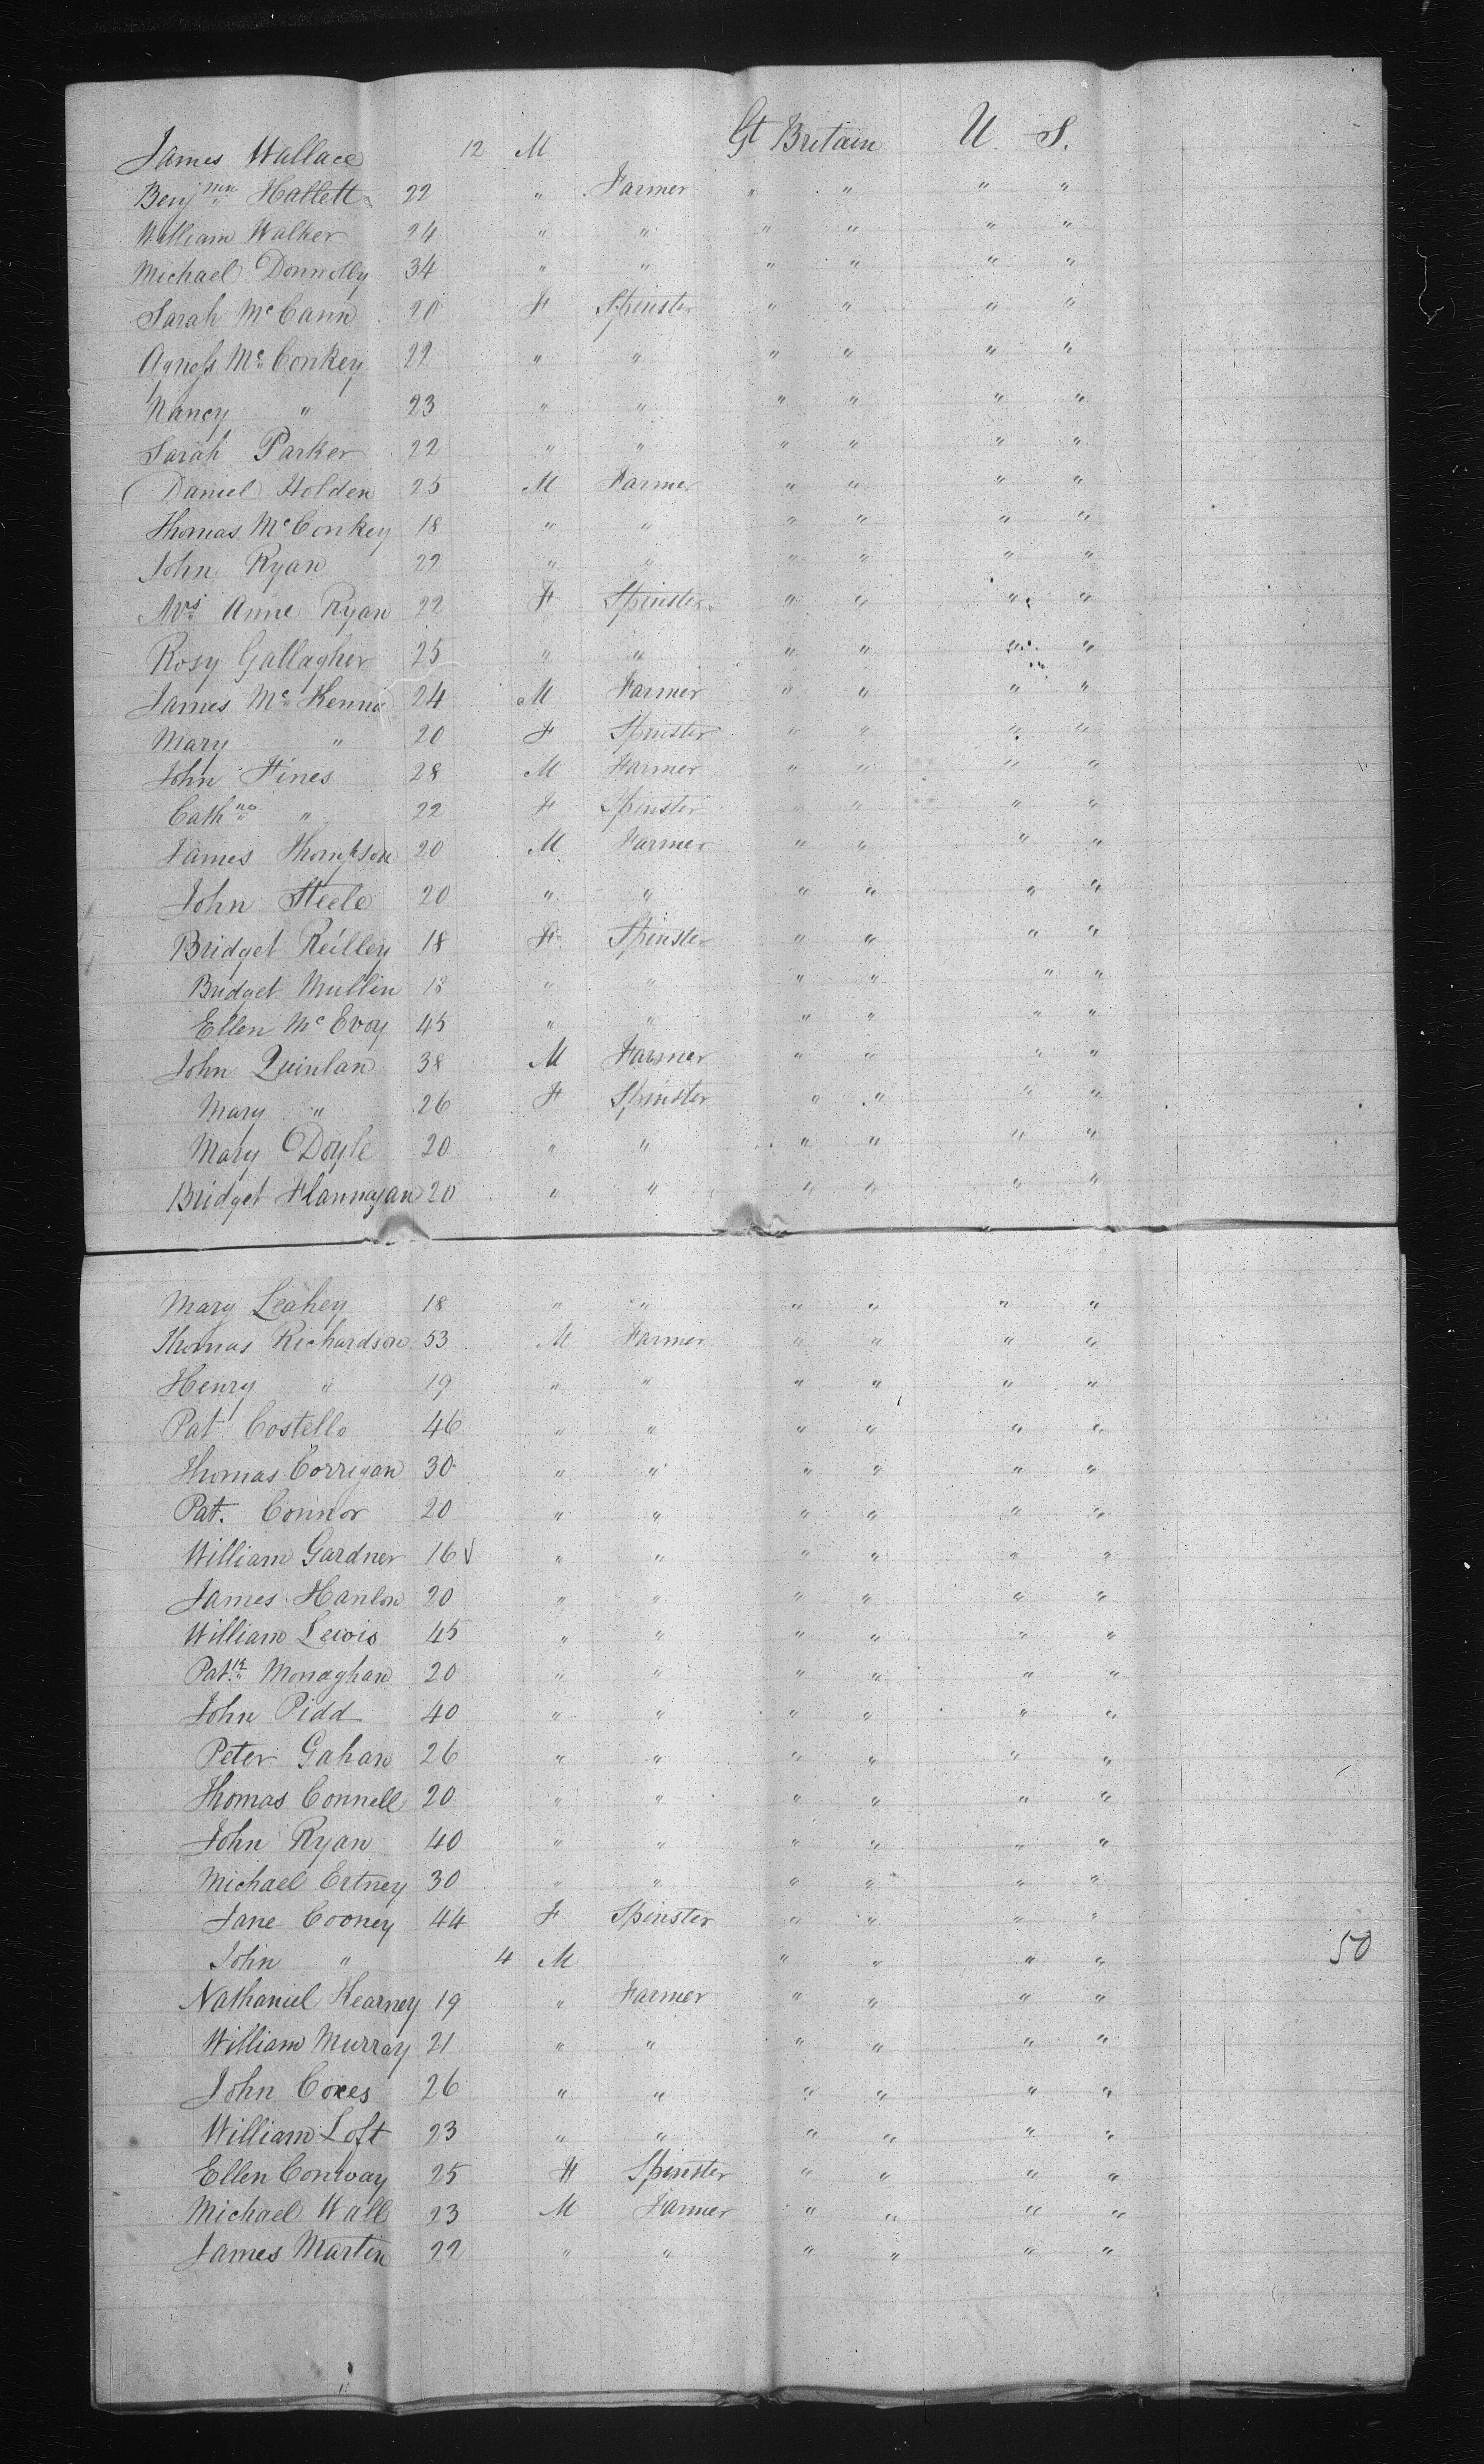 James Wallace 12 M Gt Britain U. S.
Benjmn Hallett 22 " Farmer " " " "
William Walker 24 " " " " " "
Michael Donnelly 34 " " " " " "
Sarah McCann 20 F Spinster " " " "
Agness McConkey 22 " " " " " "
Nancy " 23 " " " " " "
Sarah Parker 22 " " " " " "
Daniel Holden 25 M Farmer " " " "
Thomas McConkey 18 " " " " " "
John Ryan 22 " " " " " "
Mrs Anne Ryan 22 F Spinster " " " "
Rosy Gallagher 25 " " " " " "
James McKenna 24 M Farmer " " " "
Mary " 20 F Spinster " " " "
John Hines 28 M Farmer " " " "
Cathne " 22 F Spinster " " " "
James Thompson 20 M Farmer " " " "
John Steele 20 " " " " " "
Bridget Reilley 18 F Spinster " " " "
Bridget Mullin 18 " " " " " "
Ellen McEvoy 45 " " " " " "
John Quinlan 38 M Farmer " " " "
Mary " 26 F Spinster " " " "
Mary Doyle 20 " " " " " "
Bridget Flannagan 20 " " " " " "
Mary Leahey 18 " " " " " "
Thomas Richardson 53 M Farmer " " " "
Henry " 19 " " " " " "
Pat Costello 46 " " " " " "
Thomas Corrigan 30 " " " " " "
Pat. Connor 20 " " " " " "
William Gardner 16 " " " " " "
James Hanlon 20 " " " " " "
William Lewis 45 " " " " " "
Patk Monaghan 20 " " " " " "
John Pidd 40 " " " " " "
Peter Gahan 26 " " " " " "
Thomas Connell 20 " " " " " "
John Ryan 40 " " " " " "
Michael Ertney 30 " " " " " "
Jane Cooney 44 F Spinster " " " "
John " 4 M " " " " 50
Nathaniel Kearney 19 " Farmer " " " "
William Murray 21 " " " " " "
John Coxes 26 " " " " " "
William Loft 23 " " " " " "
Ellen Conway 25 F Spinster " " " "
Michael Wall 23 M Farmer " " " "
James Martin 22 " " " " " "